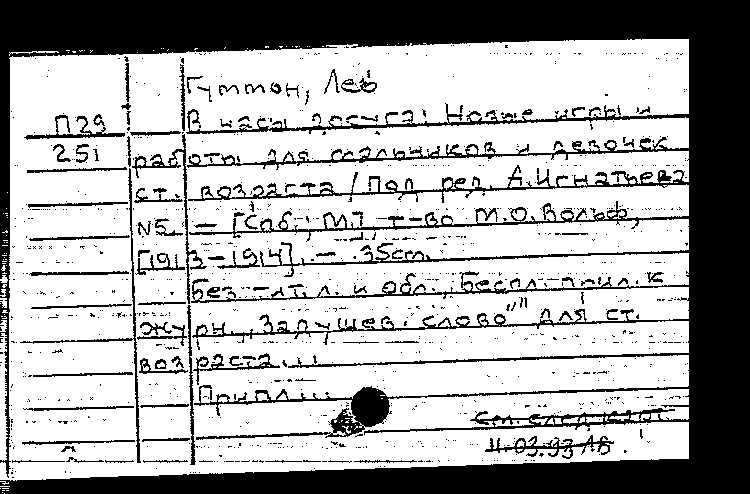 Гуттон, Лев
П29 В часы досуга: Новые игры и
251 работы для мальчиков и девочек
ст. возраста / Под ред. А. Игнатьева
№5. — [Спб.; М.], т-во М.О. Вольф,
[1913-1914]. — 35см.
Без тит. л. и обл., Беспл. прил. к
журн. „Задушев. слово"" для ст.
возраста...
Припл...
см. след карт.
11.03.93 ЛВ.